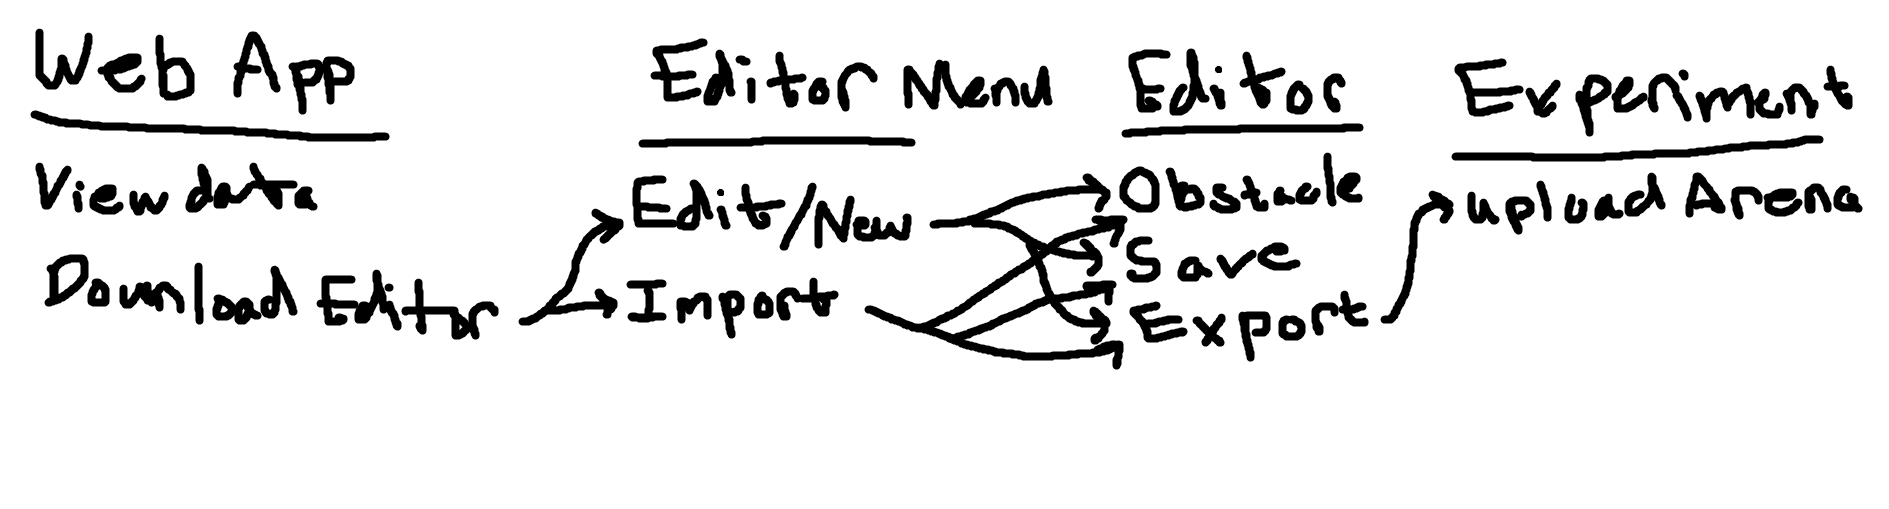 Web App
View data
Download Editor
Editor Menu
Edit/New
Import
Editor
Obstacle
Save
Export
Experiment
upload Arena